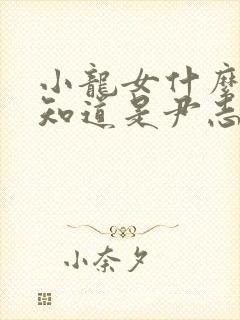 小龍女什麼
知道是尹志
小奈夕